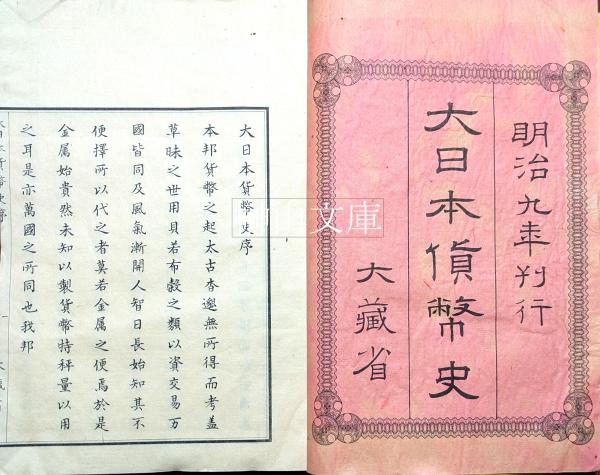 明治九年刊行
大日本貨幣史
大藏省
大日本貨幣史序
本邦貨幣之起太古杳邈無所得而考蓋
草昧之世用貝若布穀之類以資交易万
國皆同及風氣漸開人智日長始知其不
便擇所以代之者莫若金属之便焉於是
金属始貴然未知以製貨幣特秤量以用
之耳是亦萬國之所同也我邦
文庫